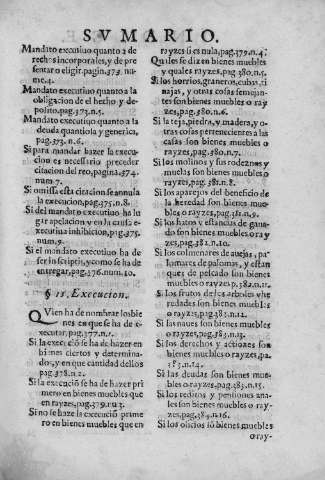 SVMARIO.
Mandato executiuo quanto a de
rechos incorporales, y de pre
sentar o eligir. pagin. 373. nu
me. 4.
Mandato executiuo quanto a la
obligacion de el hecho y de-
posito, pag. 373. n. 5.
Mandato executiuo quanto a la
deuda quantiola y generica,
pag. 373. n. 6.
Si para mandar hazer la execu-
cion es necessario preceder
citacion del reo, pagina 374.
num. 7.
Si omissa esta citacion se annula
la execucion, pag. 375. n. 8.
Si del mandato executiuo ha lu
gar apelacion y en la causa e-
xecutiua inhibicion, pag. 375.
num. 9.
Si el mandato executiuo ha de
ser in scriptis, y como se ha de
entregar, pag. 376. num. 10.
§ 11. Execucion.
Quien ha de nombrar los bie
nes en que se ha de e-
xecutar, pag. 377. n. 1.
Si la execució se ha de hazer en
bienes ciertos y determina-
dos, y en que cantidad dellos
pag. 378. n. 2.
Si la execució se ha de hazer pri
mero en bienes muebles que
en rayzes, pag. 379. nu 3.
Si no se haze la execució prime
ro en bienes muebles que en
rayzes si es nula, pag. 379. n. 4.
Quales se dizen bienes muebles
y quales rayzes, pag 380. n. 5.
Si los horrios, graneros, cubas, ti
najas, y otras cosas semejan-
tes son bienes muebles o ray
zes, pag. 380. n. 6.
Si la teja, piedra, y madera, y o-
tras cosas pertenecientes a las
casas son bienes muebles o
rayzes, pag. 380. n. 7.
Si los molinos y sus rodeznos y
muelas son bienes muebles o
rayzes, pag. 381. n. 8.
Si los aparejos del beneficio de
la heredad son bienes mue-
bles o rayzes, pag. 381. n. 9.
Si los hatos y estancias de gana-
do son bienes muebles o ray
zes, pag. 382. n. 10.
Si los colmenares de auejas, pa-
lomares de palomas, y estan
ques de pescado son bienes
muebles o rayzes p. 382. n. 11.
Si los frutos de los arboles y he
redades son bienes muebles o
rayzes, pag. 383. n. 12.
Si las naues son bienes muebles
o rayzes, pag. 383. n. 13.
Si los derechos y actiones son
bienes muebles o rayzes, pa.
383. n. 14.
Si las deudas son bienes mue-
bles o rayzes, pag. 383. n. 15.
Si los reditos y pensiones ana-
les son bienes muebles o ray-
zes, pag. 384. n. 16.
Si los oficios só bienes muebles
o ray-